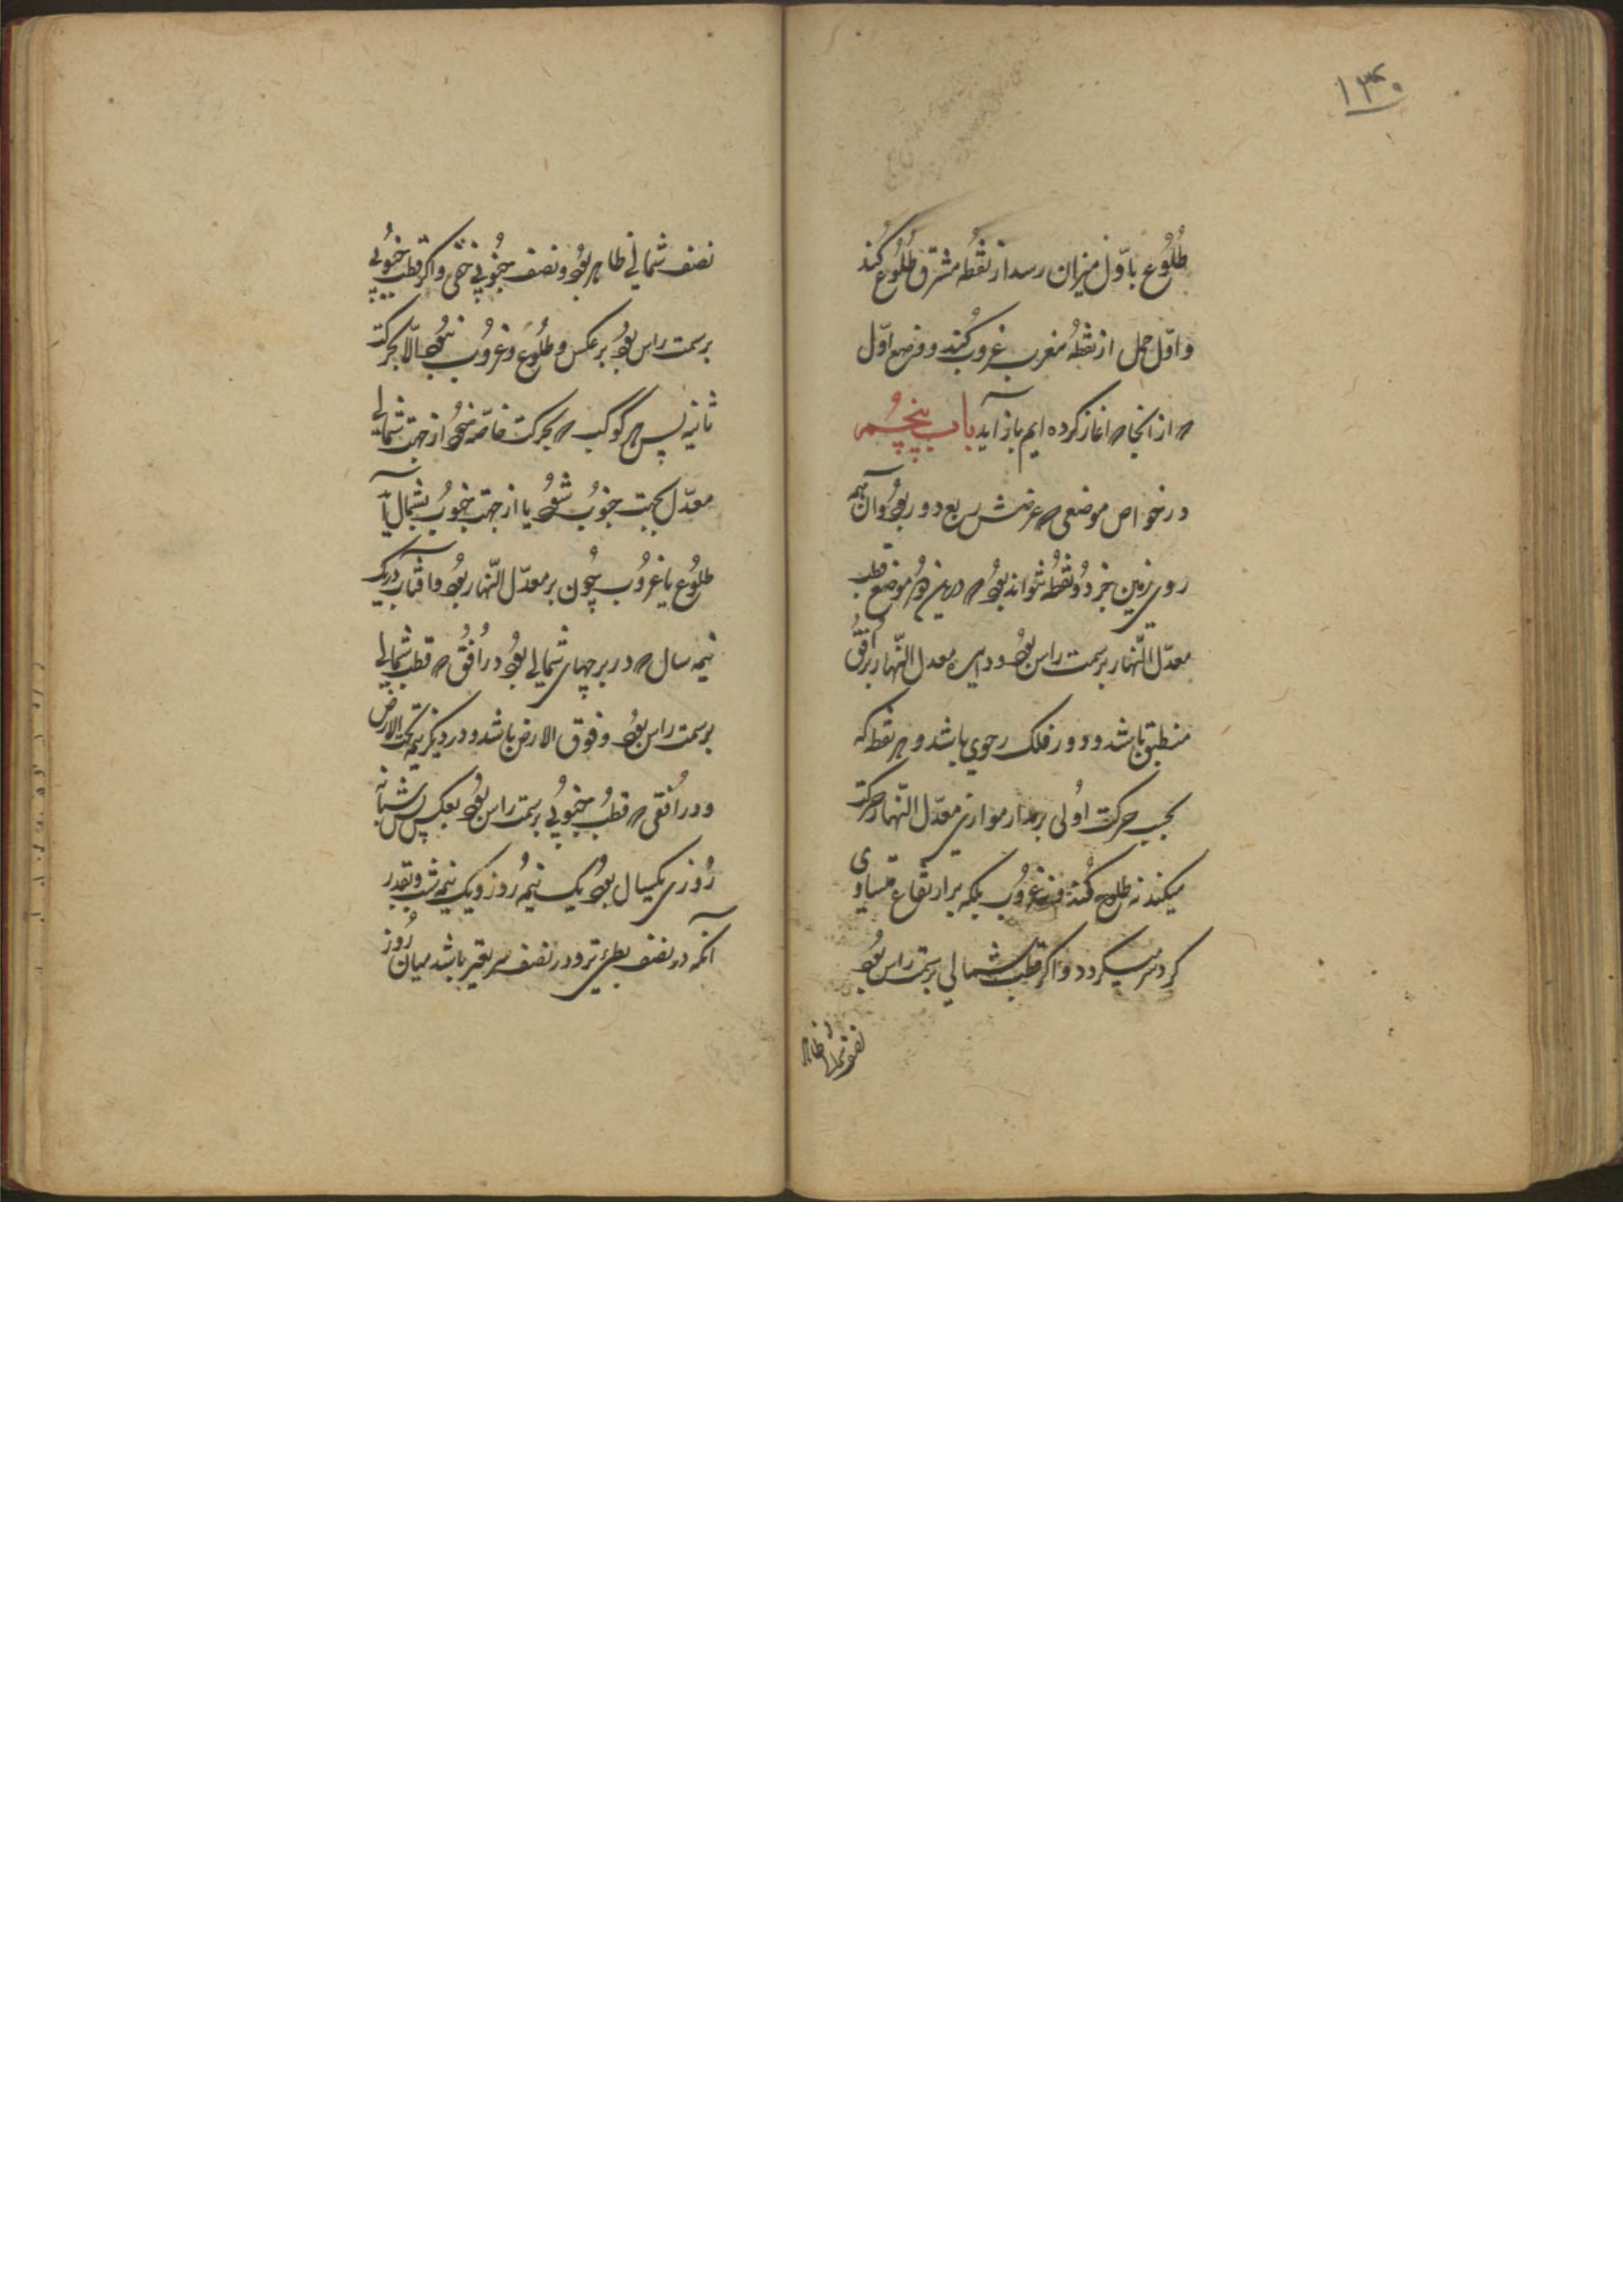 ۱۳۰
طلوع باوّل میزان رسد از نقطه مشرق طلوع کند
و اوّل حمل از نقطه مغرب غروب کند و وضع اوّل
که از انجا که اغاز کرده ایم باز آید باب پنجم
در خواص موضعی که عرضش ربع دور بود و ان بر همه
روی زمین جز دو نقطه نتواند بود که در این دو موضع قطب
معدّل النّهار بر سمت راس بود و دایره معدل النّهار بر افق
منطبق باشد و دور فلک رحوی باشد و هر نقطه که
بحسب حرکت اولی بر مدار موازی معدّل النّهار حرکت
میکند نه طلوع کند و نه غروب بلکه بر ارتفاع متساوی
کرد سر میکردد و اکر قطب شمالی بر سمت راس بود
نصف شمالی ظاهر
نصف شمالی ظاهر بود و نصف جنوبی خفی و اکر قطب جنوبی
بر سمت راس بود بر عکس و طلوع و غروب نبود الّا بحرکت
ثانیه پس هر کوکب که بحرکت خاصّه خود از جهت شمالی
معدّل بجهت جنوب شود یا از جهت جنوب بشمال آید
طلوع یا غروب چون بر معدّل النّهار بود و افتاب در یک
نیمه سال که در برجهای شمالی بود در افق که قطب شمالی
بر سمت راس بود و فوق الارض باشد و در دیگر نیمه تحت الارض
و در افقی که قطب جنوبی بر سمت راس بود بعکس پس شبانه
روزی یکسال بود یک نیمه روز و یک نیمه شب و بقدر
آنکه در نصف بطی تر و در نصف سریعتر باشد میان روز